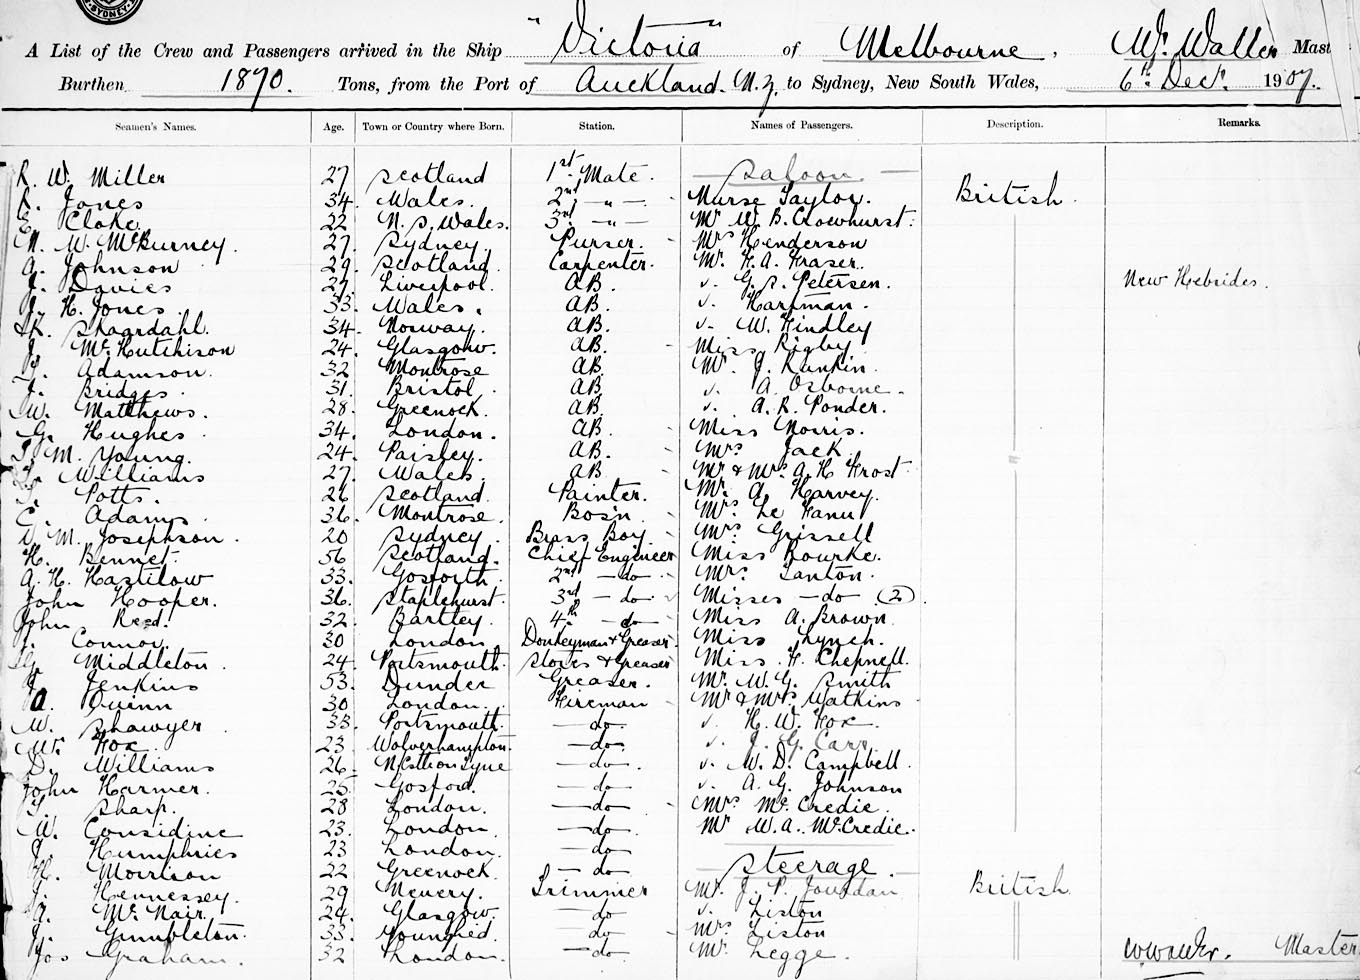 SYDNEY
A List of the Crew and Passengers arrived in the Ship "Victoria" of Melbourne, W. Waller Mast
Burthen 1870. Tons, from the Port of Auckland. N.Z. to Sydney, New South Wales, 6th Decr. 1907.
Seamen's Names. Age. Town or Country where Born. Station. Names of Passengers. Description. Remarks.
R. W. Miller 27 Scotland 1st Mate. Saloon
Jones 34. Wales. 2nd " Nurse Taylor. British.
E. Cloke 22 N. S. Wales. 3rd " Mr W. B. Crowhurst.
W. McBurney. 27. Sydney. Purser. Mrs Henderson
Johnson 29. Scotland. Carpenter. Mr. F. A. Fraser.
J. Davies 27. Liverpool. AB. " G. S. Petersen. New Hebrides.
J. H. Jones. 33. Wales. AB. " Harriman.
Skogrdahl. 34. Norway. AB. " W. Findley
McHutchison 24. Glasgow. AB. Miss Rigby.
Adamson. 32 Montrose AB. Mr. J. Rankin.
J. Bridges. 31. Bristol. AB " A. Osborne.
W. Matthews. 28. Greenock. AB. " A. R. Ponder.
G. Hughes. 34. London. AB. Miss Norris.
M. Young. 24. Paisley. AB. Mrs Jack
Williams 27. Wales. AB. Mr & Mrs A. H. Frost
Potts. 26 Scotland. Painter. Mr. A. Harvey.
C. Adams. 36. Montrose. Bosn. Mrs. Le Fanu
D. M. Josephson. 20 Sydney. Brass Boy. Mrs. Grissell
H. Bennet. 56 Scotland. Chief Engineer Miss Rourke.
A. H. Hastilow 33. Gosforth. 2nd do. Mrs. Lanton.
John Hooper. 36. Staplehurst. 3rd do. Misses do (2)
John Reed. 32. Bartley. 4th do Miss A. Brown.
J. Connor. 30 London. Donkeyman & Greaser Miss Lynch.
Middleton. 24. Portsmouth. Stores & Greaser Miss. F. Chepnell.
Jenkins 53. Dundee Greaser. Mr. W. G. Smith
A. Quinn 30 London. Fireman Mr & Mrs Watkins
W. Shawyer 33. Portsmouth. do " H. W. Fox
W. Fox. 23. Wolverhampton. do " J. G. Carr
D. Williams 26. NCstleonTyne do " W. D. Campbell.
John Harmer. 25. Gosford. do " A. G. Johnson
Sharp. 28 London. do Mrs McCredie.
W. Considine 23. London. do Mr W. A. McCredie.
J. Humphries 23 London. do
H. Morrison 22 Greenock. do Steerage.
J. Hennessey. 29 Newry. Trimmer Mr. J. P. Jourdan British.
A. McNair. 24. Glasgow. do " Liston
J. Gumbleton. 33. Younghed. do Mrs Liston
Jos Graham. 32 London. do Mr. Legge. W Waller. Master